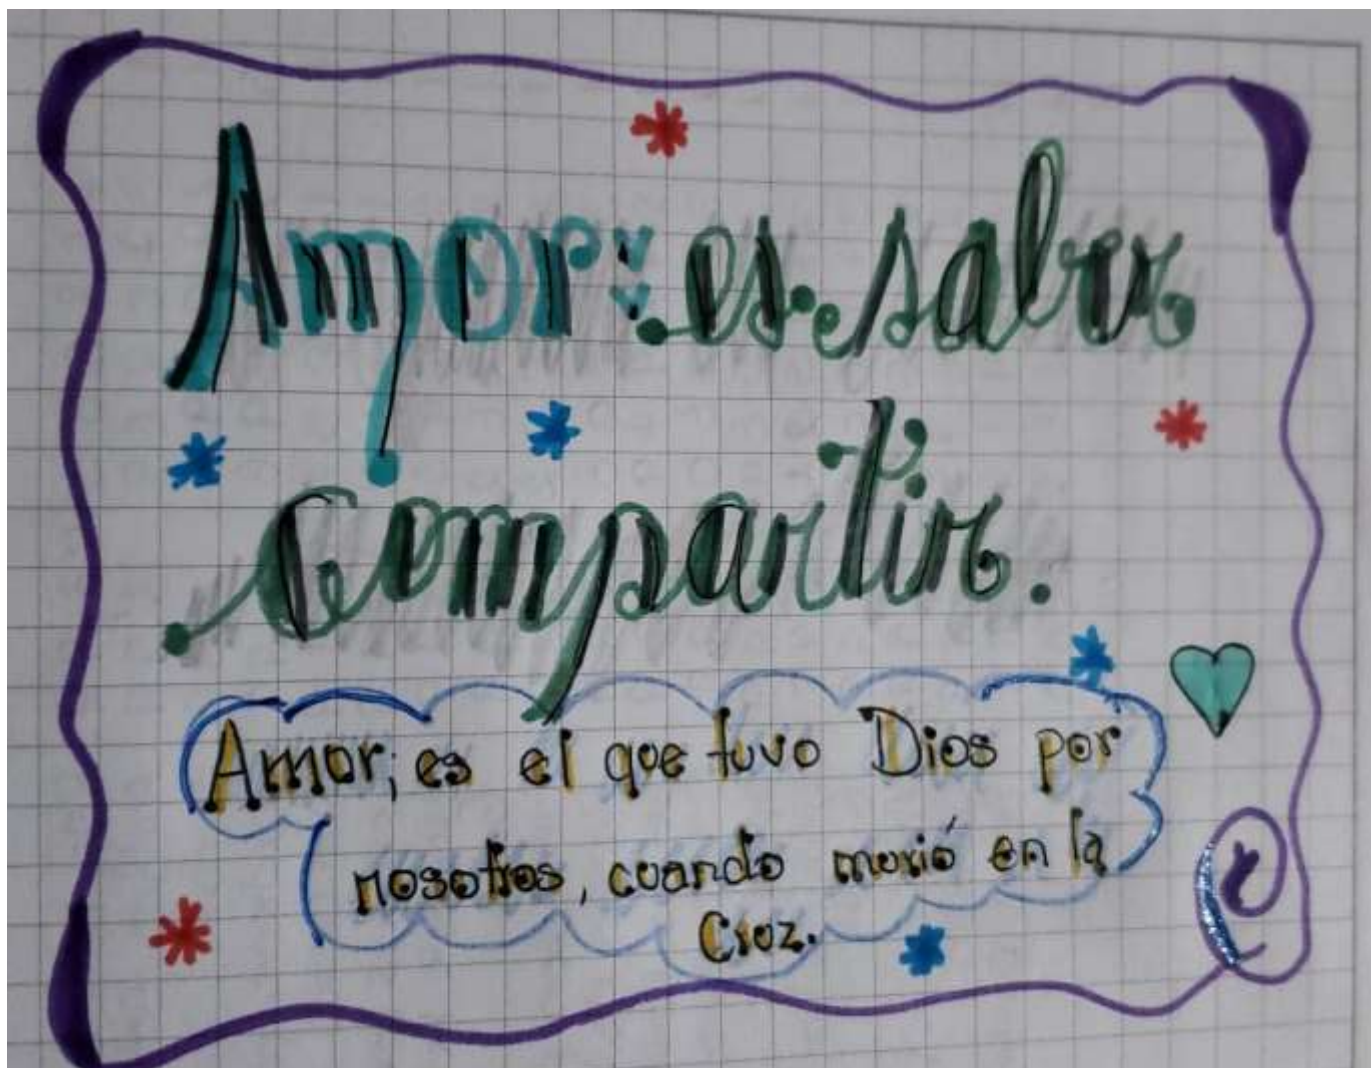 Amor: es saber
compartir.
Amor; es el que tuvo Dios por
nosotros, cuando murió en la
Cruz.